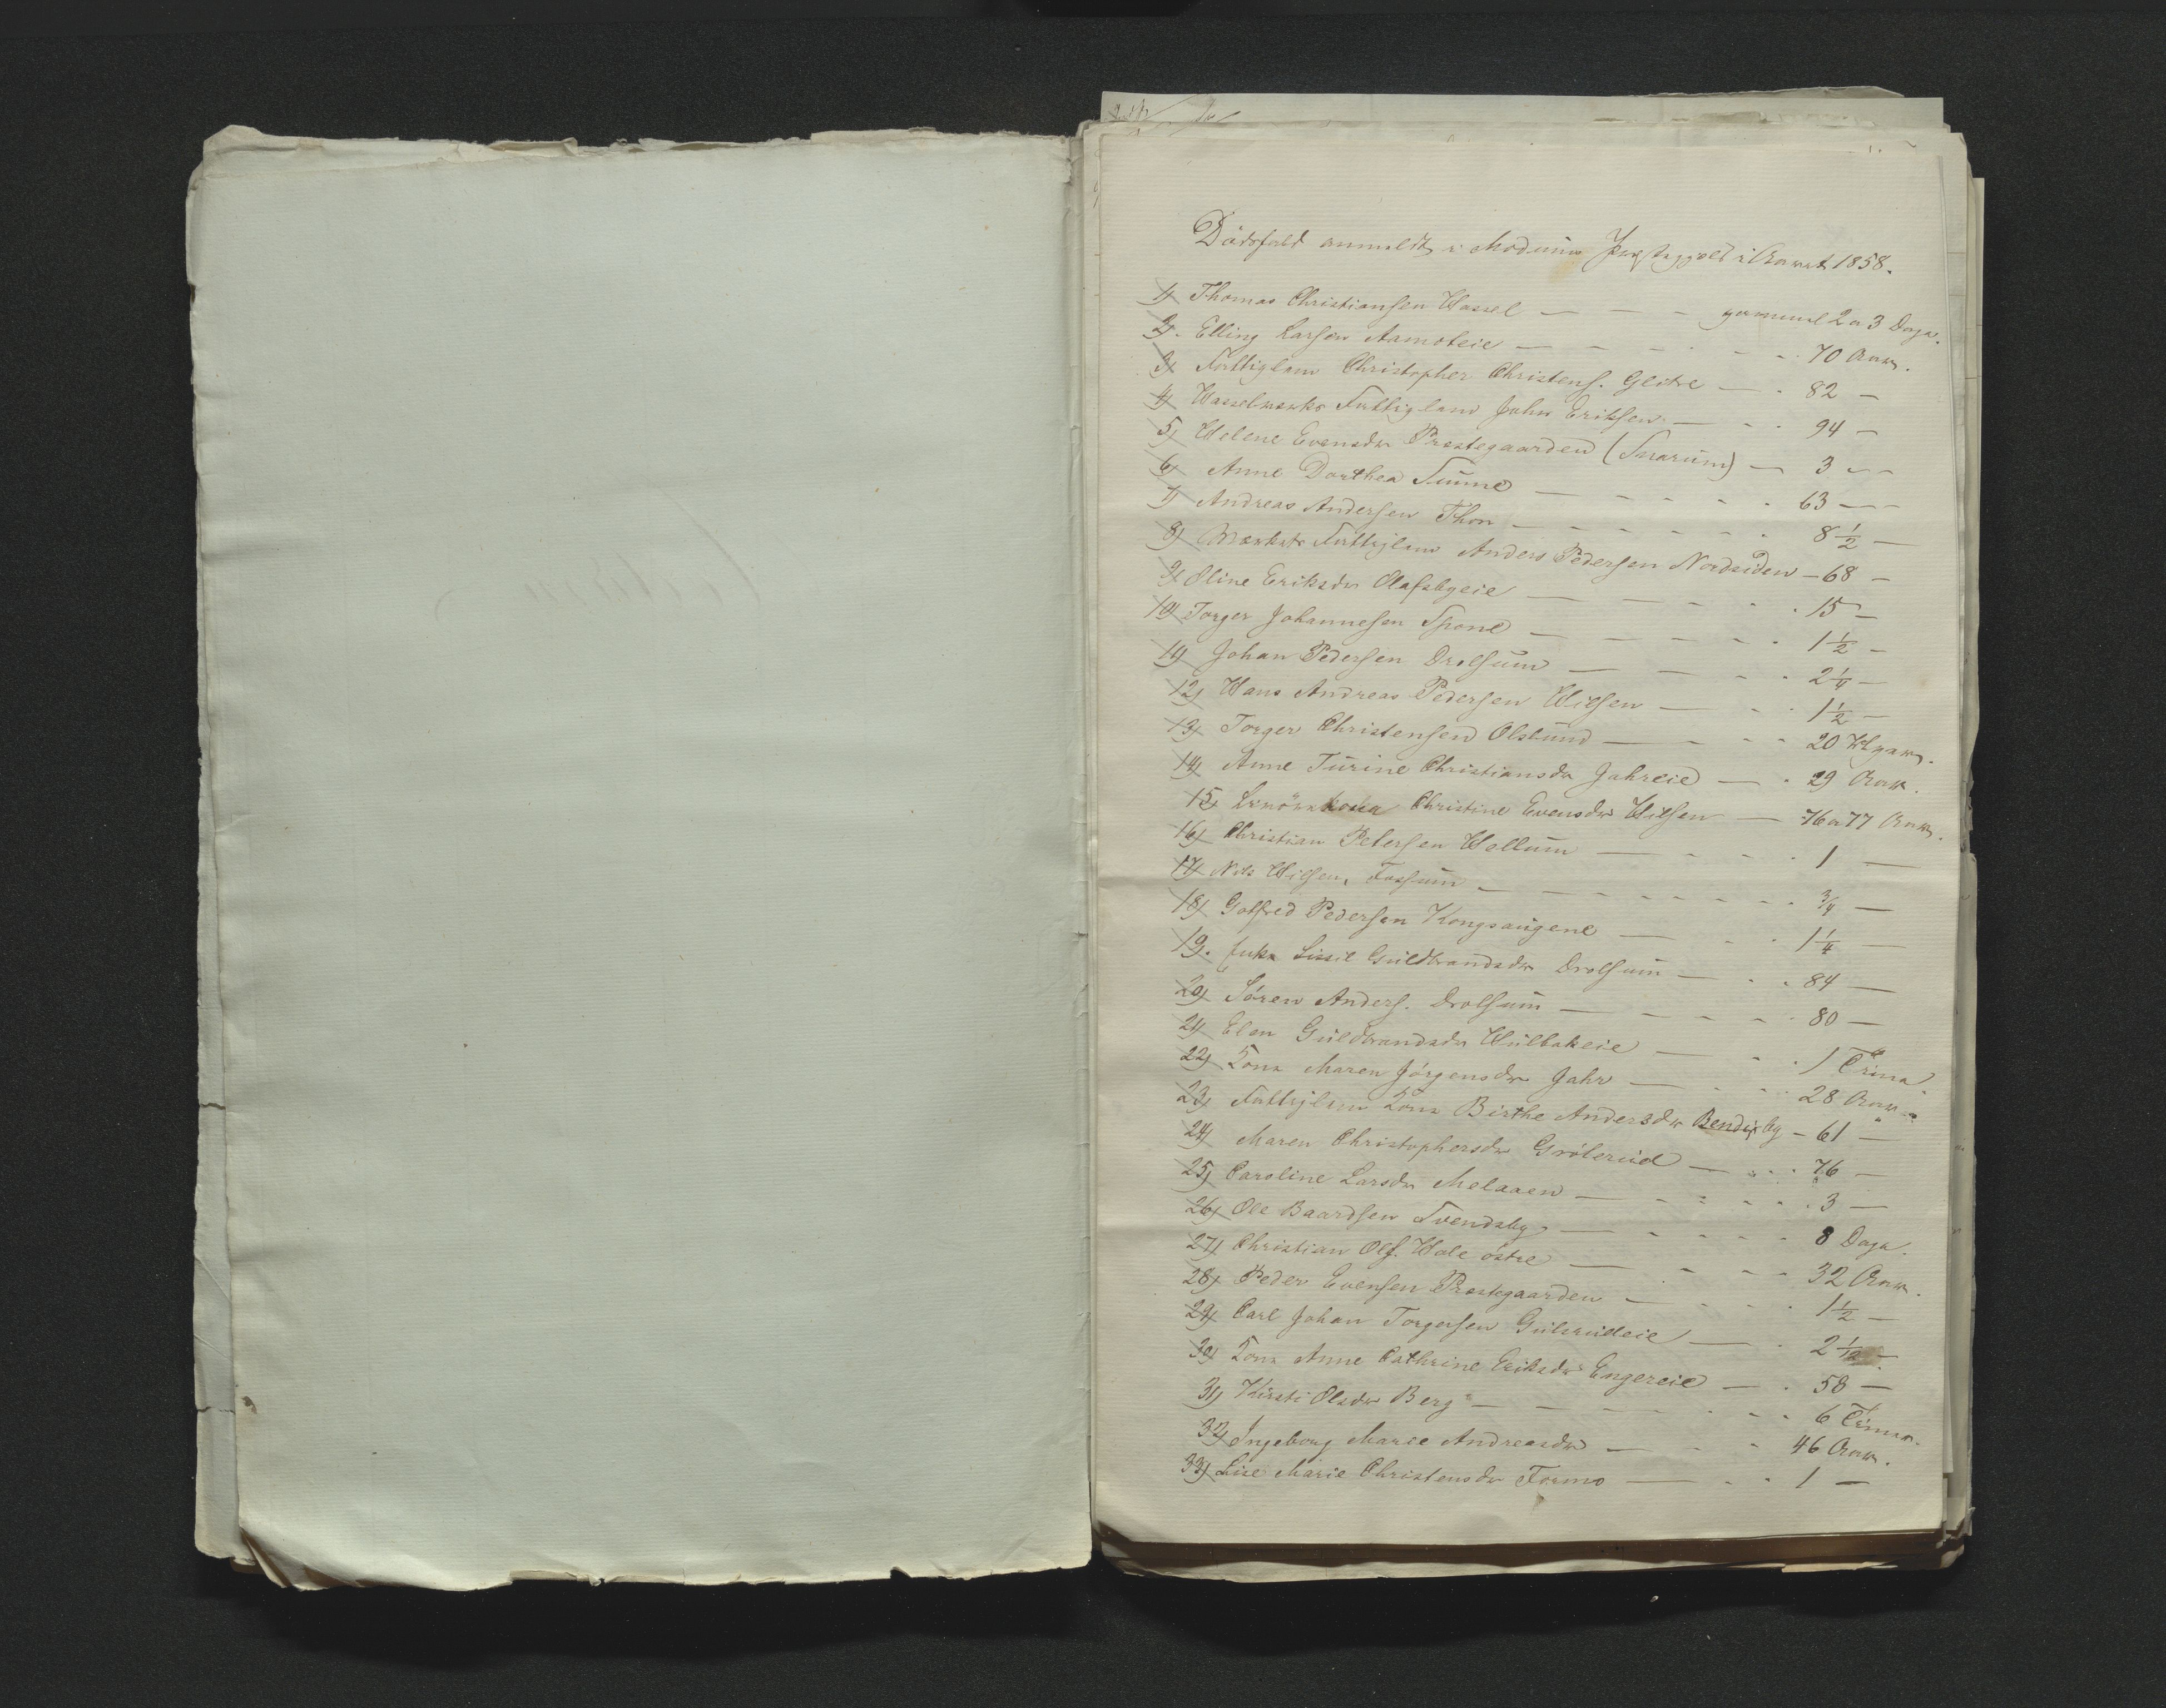 Dödsfald anmeldt i Modums Præstegjeld i Aaret 1858.
1) Thomas Christiansen Hassel — — - gammel 2 a 3 Dage.
2). Elling Larsen Aamoteie — - - - - - 70 Aar.
3) Fattiglem Christopher Christens. Glitre — - 82 -
4) Hasselværks Fattiglem John Eriksen — - - 94 -
5) Helene Evensdr Præstegaarden (Snarum) — 3 —
6) Anne Dorthea — - - - - - 63 —
7) Andreas Andersen Thon — - - - - - 8 1/2 —
8) Fattiglem Anders Pedersen Nordsiden - 68 -
9) Oline Eriksdr Olafsbyeie — - - - - 15 —
10) Torger Johannesen Spone — - - - - - 1 1/2 -
11) Johan Pedersen Drolsum — - - - 2 1/4 —
12) Hans Andreas Pedersen Hilsen — - - 1 1/2 —
13) Torger Christensen — - - - 20 Uger.
14) Anne Turine Christiansdr Jahreie — - 29 Aar.
15) Christine Evensdr Hilsen — 76 a 77 Aar.
16) Christian Petersen Hellum — - - - - 1 —
17) Nils Hilsen, Fossum - - - - - - - - 3/4 —
18) Gotfred Pedersen Kongsaugene — - - 1 1/4 —
19. Enke Sissil Guldbrandsdr Drolsum — - - 84 —
20) Sören Anders. Drolsum — - - - - 80 —
21) Elen Guldbrandsdr Hulbakeie — - - 1 Time
22) Kone Maren Jörgensdr Jahr — - - - 28 Aar
23) Fattiglem Kone Birthe Andersdr Bendixby - 61 —
24) Maren Christophersdr Gröterud — - - - 76 —
25) Caroline Larsdr Melaaen — - - - - - 3 —
26) Ole Baardsen Svendsby — - - - - - 8 Dage.
27) Christian Ols. Hole östre — - - - 32 Aar.
28) Peder Evensen Præstegaarden — - - - 1 1/2 —
29) Carl Johan Torgersen Gulsrudeie — - 2 1/2 —
30) Kone Anne Cathrine Eriksdr Engereie — - 58 —
31) Kirsti Olsdr Berg — - - - - - 6 Timer.
32) Ingeborg Marie Andreasdr — - - 46 Aar.
33) Lise Marie Christensdr Formo — - - 1 —